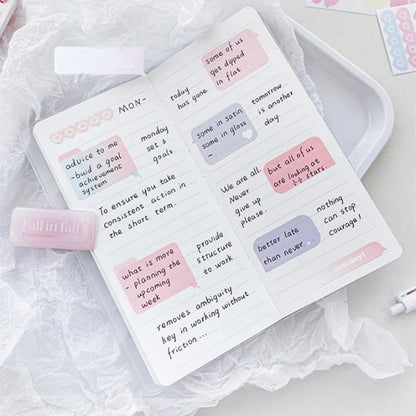 MON-
advice to me
-buid a goal
achievement
system
monday
set 6
goals
To ensure you take
consistent action in
the short term.
what is more
- planning the
upcoming
week
provide
structure
to work
removes ambiguity
key in working without
friction...
today
has gone.
some of us
get dipped
in flat
some in satin
some in gloss
-
tomorrow
is another
day
We are all.
Never
give up
please.
but all of us
are looking at
stars.
better late
than never.
nothing
can stop
courage!
fall in fall